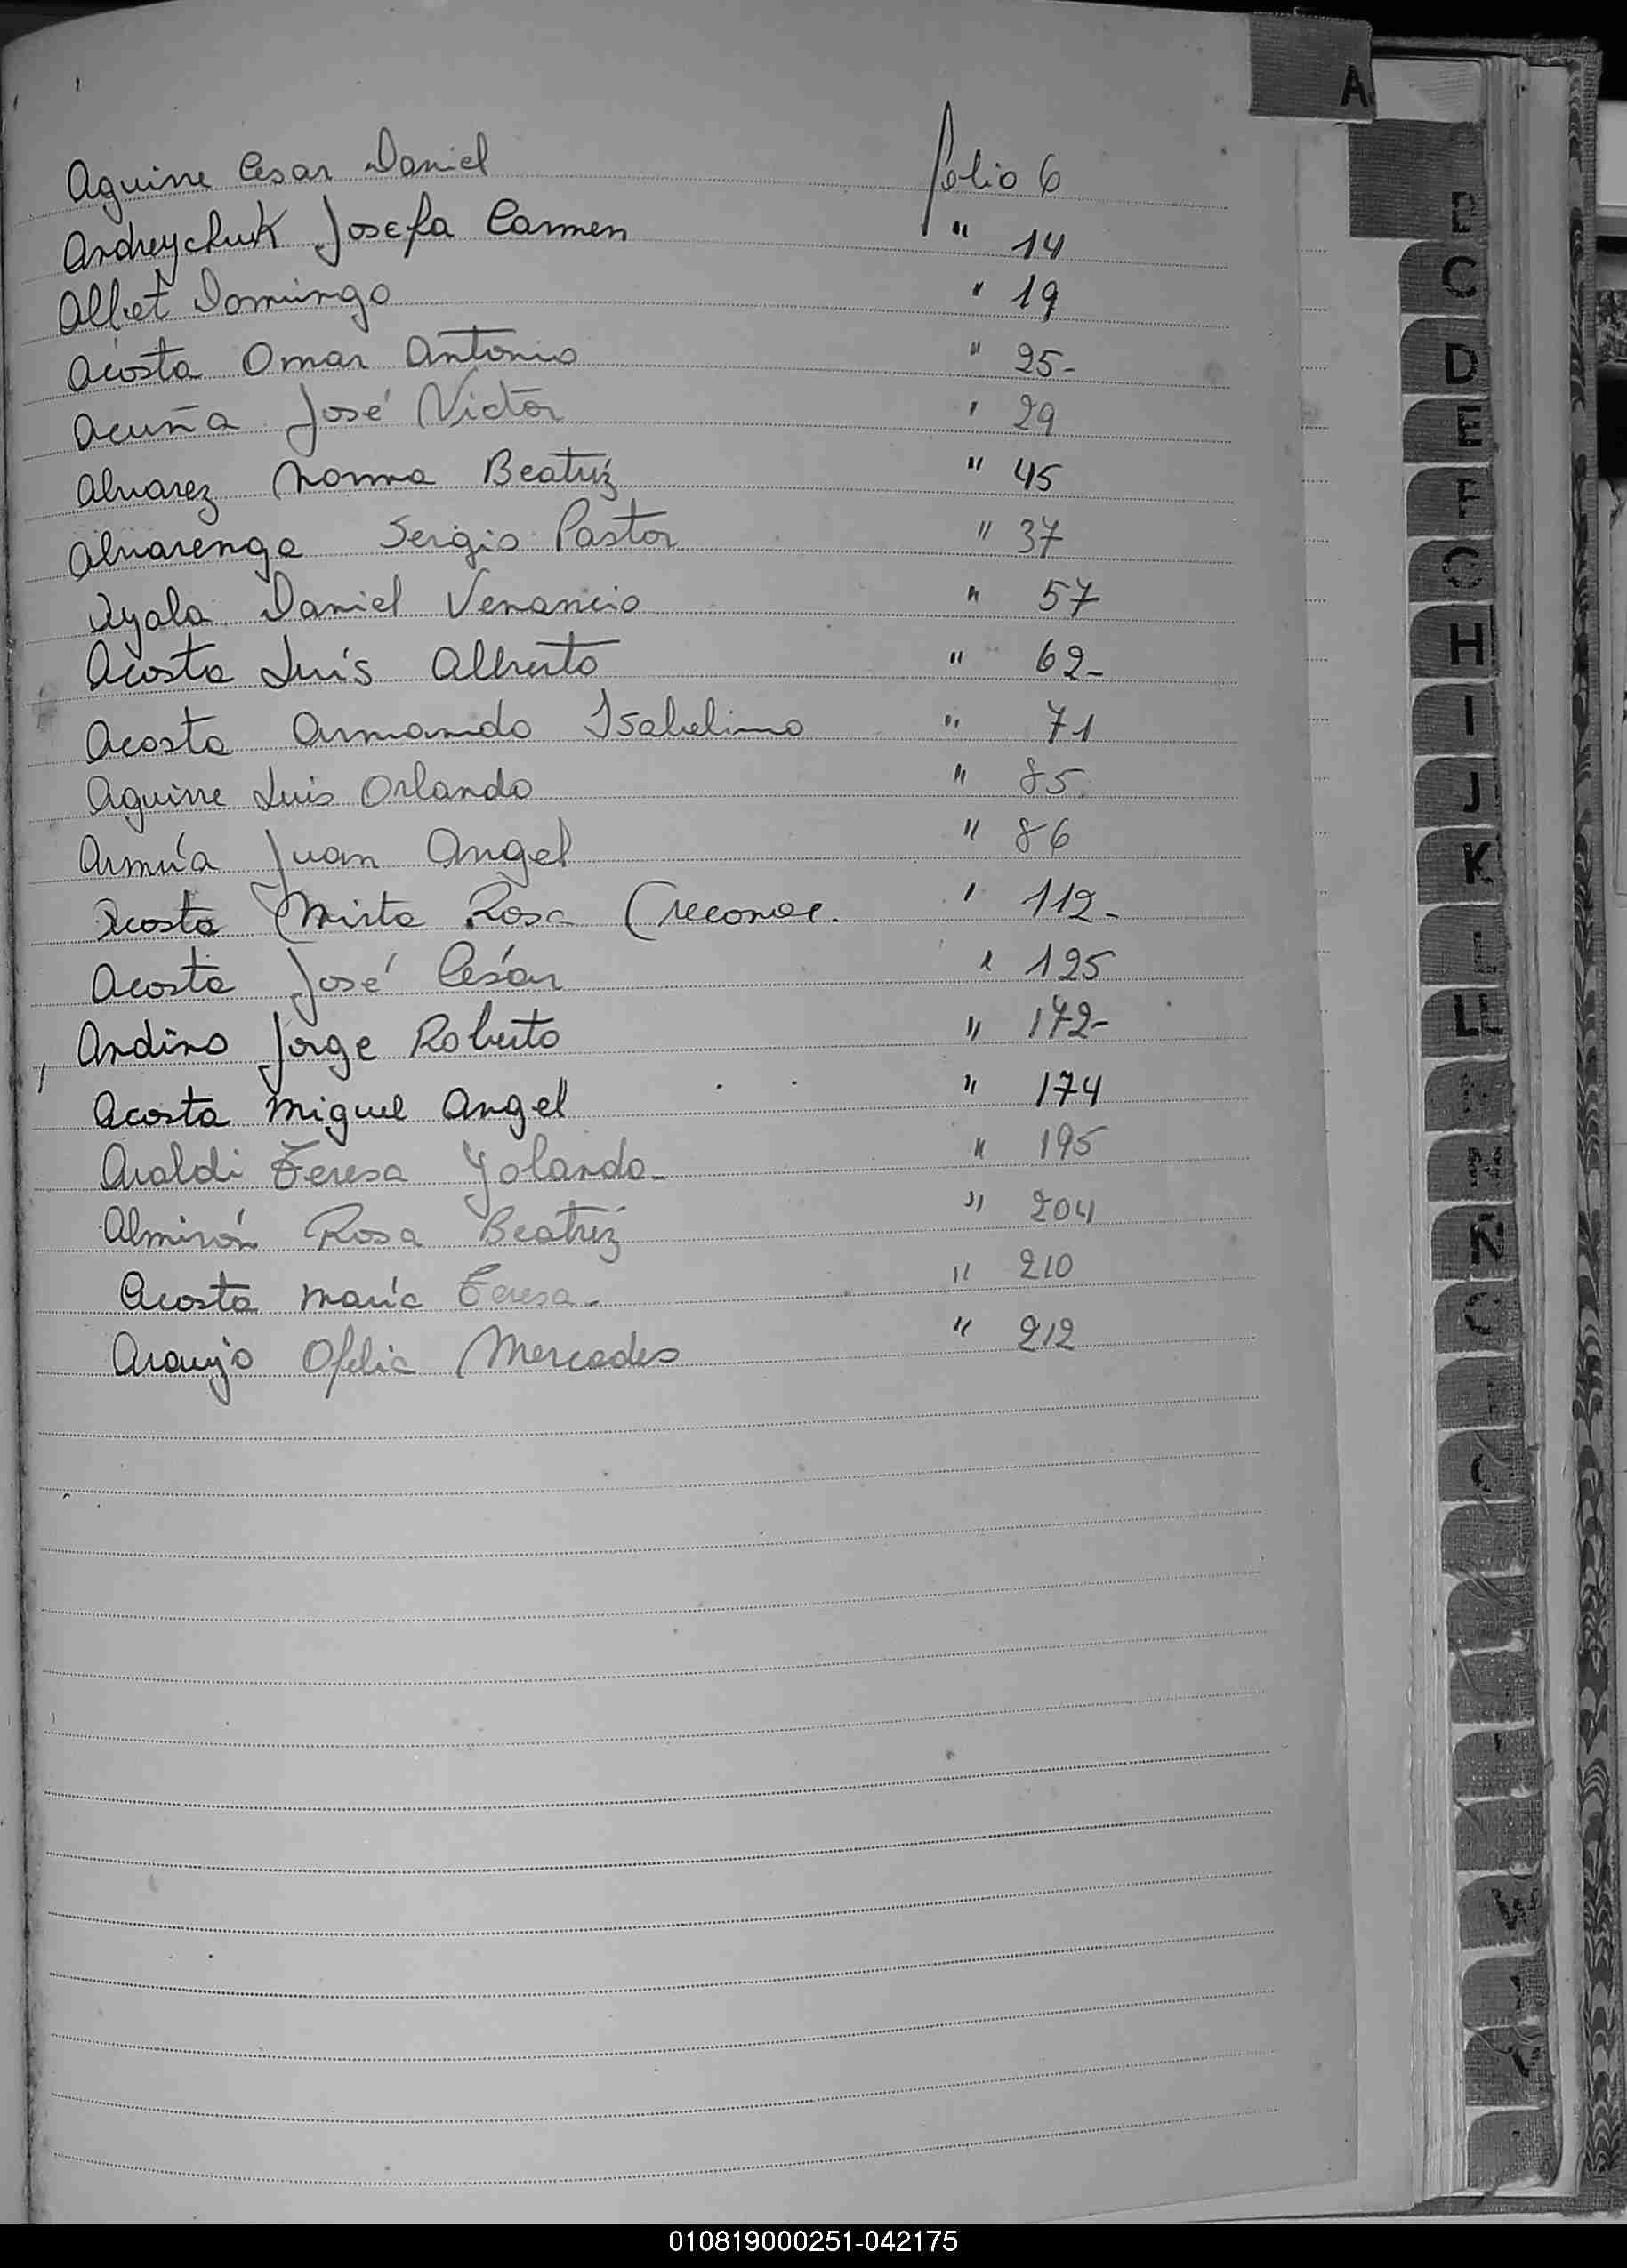 A
Aguirre Cesar Daniel folio 6
Andreychuk Josefa Carmen " 14
Albet Domingo " 19
Acosta Omar Antonio " 25-
Acuña José Victor " 29
Alvarez Norma Beatriz " 45
Alvarenga Sergio Pastor " 37
Ayala Daniel Venancio " 57
Acosta Luis Alberto " 62-
Acosta Armando Isabelino " 71
Aguirre Luis Orlando " 85
Armúa Juan Angel " 86
Acosta Mirta Rosa (reconoc. " 112-
Acosta José César " 125
Andino Jorge Roberto " 172-
Acosta Miguel Angel " 174
Araldi Teresa Yolanda- " 195
Almirón Rosa Beatriz " 204
Acosta María Teresa- " 210
Araujo Ofelia Mercedes " 212
C
D
E
F
H
I
J
K
LL
Ñ
W
010819000251-042175